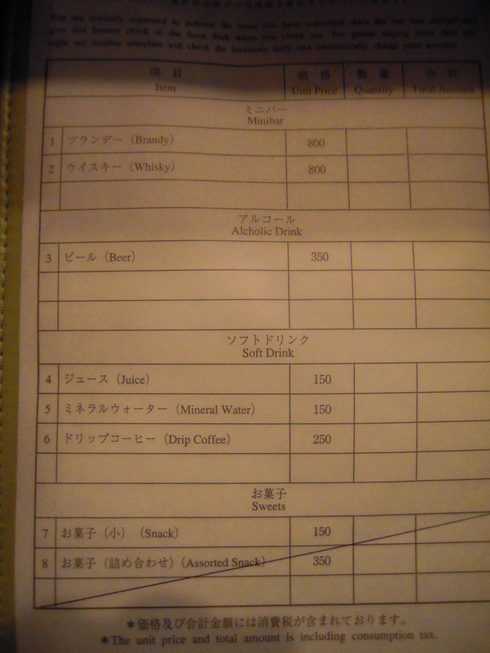 You are cordially requested to indicate the items you have consumed since the bar was refilled and
give this itemized check to the front desk when you check out. For guests staying more than one
night our minibar attendant will check the inventory daily and automatically charge your account.
項 目 価 格 数 量 合 計
Item Unit Price Quantity Total Amount
ミニバー
Minibar
1 ブランデー（Brandy） 800
2 ウイスキー（Whisky） 800
アルコール
Alcholic Drink
3 ビール（Beer） 350
ソフトドリンク
Soft Drink
4 ジュース（Juice） 150
5 ミネラルウォーター（Mineral Water） 150
6 ドリップコーヒー（Drip Coffee） 250
お菓子
Sweets
7 お菓子（小）（Snack） 150
8 お菓子（詰め合わせ）（Assorted Snack） 350
＊価格及び合計金額には消費税が含まれております。
＊The unit price and total amount is including consumption tax.